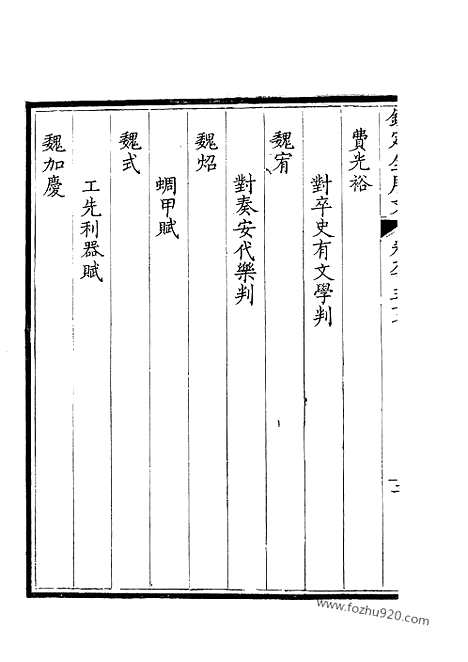 費光裕
對卒史有文學判
魏宥
對奏安代樂判
魏炤
蜩甲賦
魏式
工先利器賦
魏加慶
www.fozhu920.com